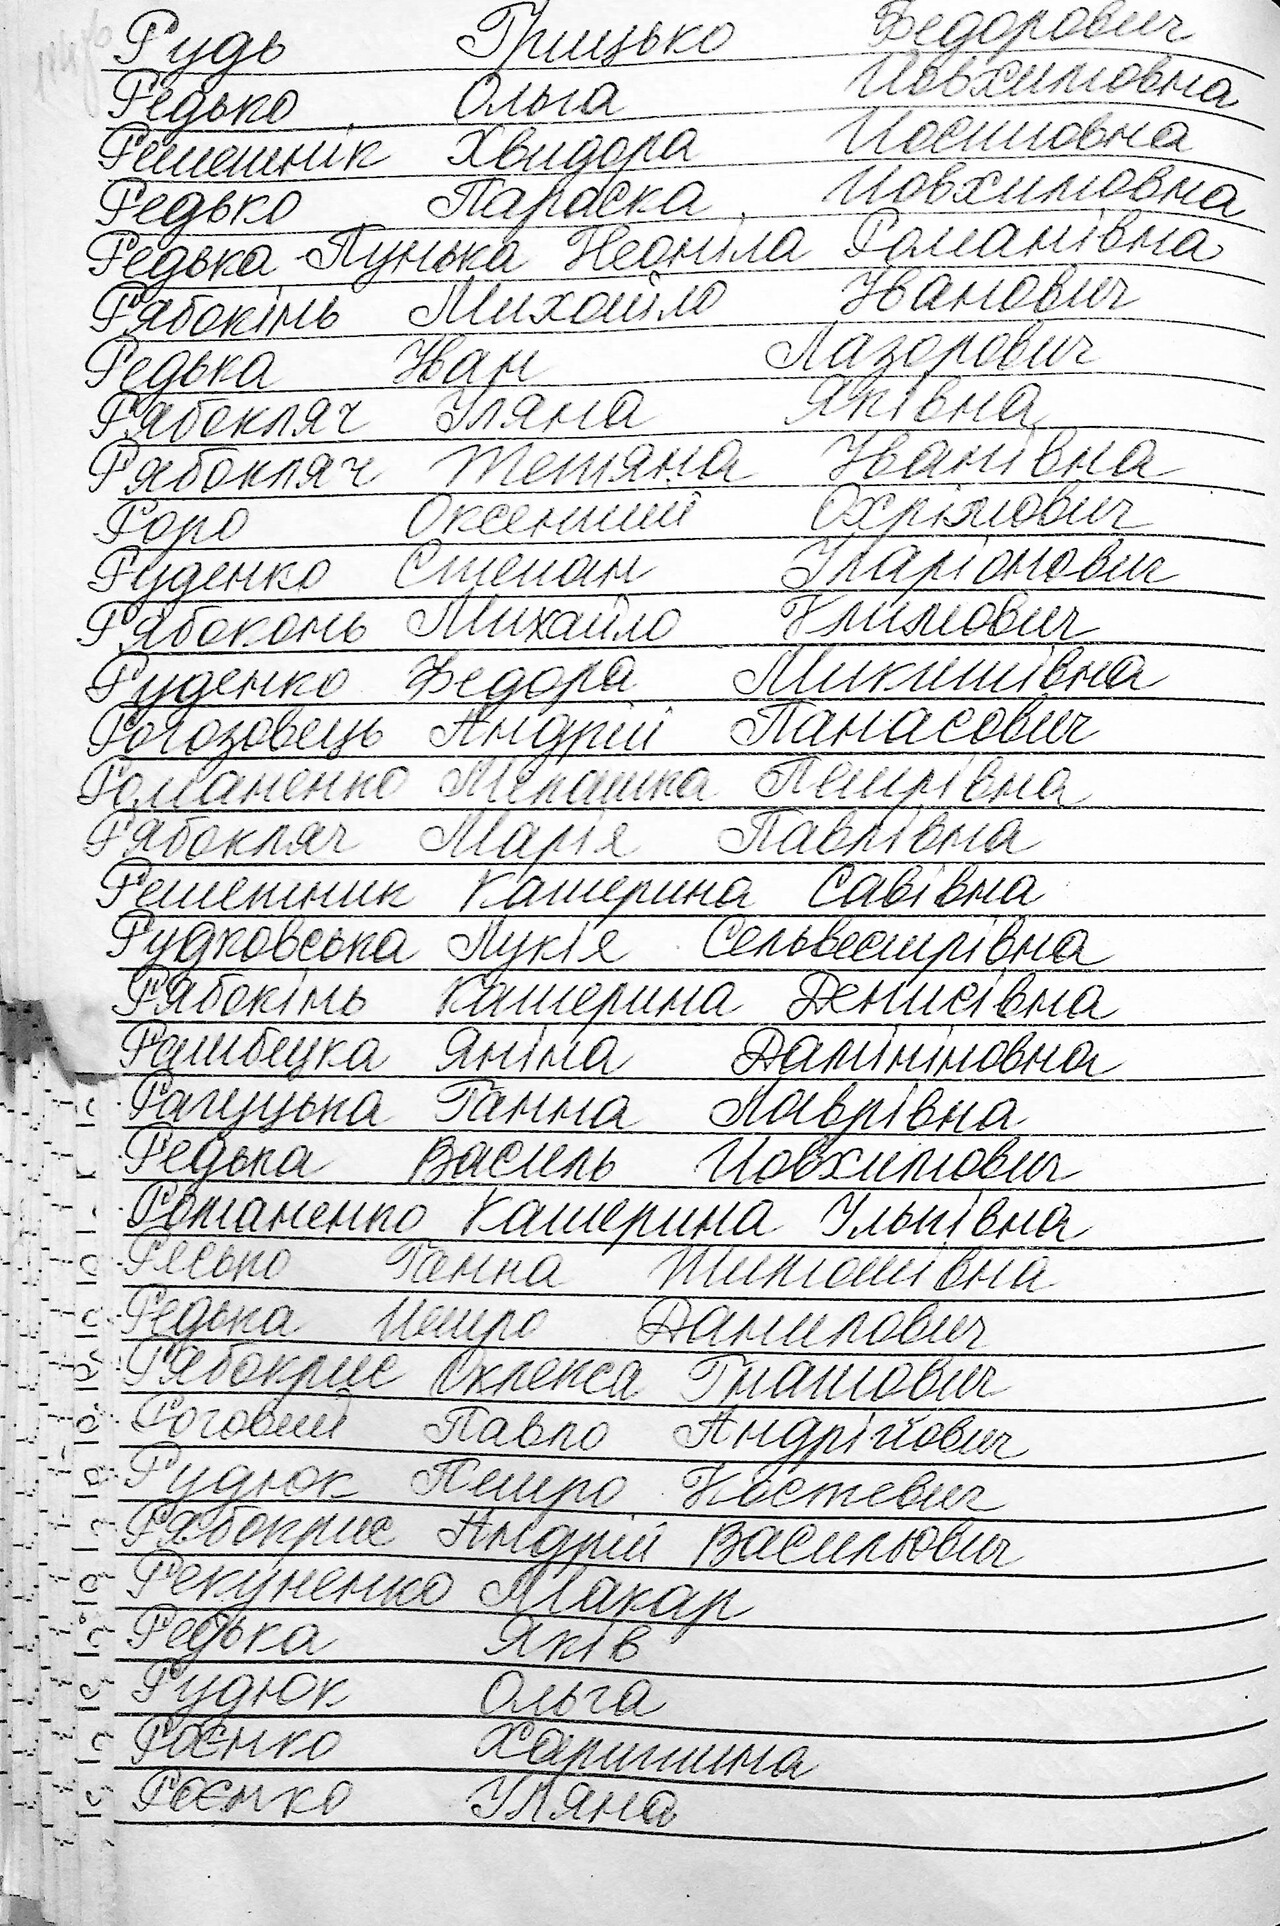 Рудь Грицько Федорович
Редько Ольга Йовхимовна
Решетнік Хвидора Йосиповна
Редько Параска Йовхимовна
Редька-Пунька Неоніла Романівна
Рябокінь Михайло Іванович
Редька Іван Лазорович
Рябокляч Уляна Яківна
Рябокляч Тетяна Іванівна
Горо Оксентий Охрімович
Руденко Степан Іларіонович
Рябоконь Михайло Климович
Руденко Федора Микитівна
Рогозовець Андрій Панасович
Романенко Мелашка Петрівна
Рябокляч Марія Павлівна
Решетник Катерина Савівна
Рудковська Лукія Сельвестрівна
Рябокінь Катерина Денисівна
Яніна Домініновна
Ганна Лаврівна
Редька Василь Йовхимович
Романенко Катерина Ільківна
Ганна
Редька Петро Данилович
Рябокрис Олекса Гнатович
Роговий Павло Андрійович
Рудюк Петро Костевич
Рябокрис Андрій Васильович
Рекуненко Макар
Редька Яків
Рудюк Ольга
Роєнко Харитина
Роєнко Уляна